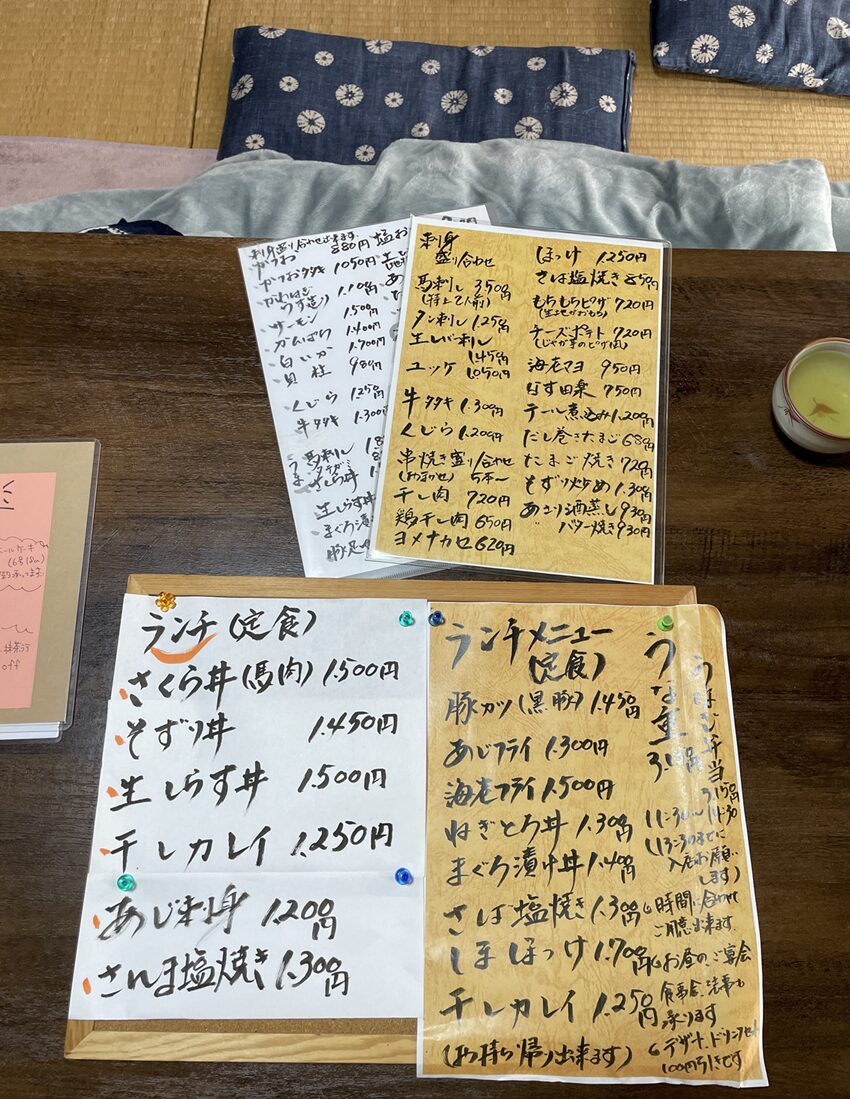 刺身盛り合わせ出来ます。
880円
塩お
かつお
かつおタタキ 1050円
かわはぎ
うす造り 1.100円
サーモン 1.500円
かんぱち 1.400円
白いか 1.700円
貝柱 980円
くじら 1.250円
牛タタキ 1.300円
馬刺し
さくら丼
生しらす丼
まぐろ漬
刺身
盛り合わせ
馬刺し 3.500円
(特上2人前)
タン刺し 1.250円
生レバー刺し
1.450円
ユッケ 1.050円
牛タタキ 1.300円
くじら 1.200円
串焼き盛り合わせ
(おまかせ) 5本〜
干し肉 720円
鶏干し肉 650円
ヨメナカセ 620円
ほっけ 1.250円
さば塩焼き 850円
もちもちピザ 720円
(生地がおもち)
チーズポテト 720円
(じゃが芋のピザ風)
海老マヨ 950円
なす田楽 750円
テール煮込み 1.200円
だし巻きたまご 680円
たまご焼き 720円
もずり炒め 1.300円
あさり酒蒸し 930円
〃 バター焼き 930円
ールケーキ
off
ランチ(定食)
さくら丼(馬肉) 1.500円
そずり丼 1.450円
生しらす丼 1.500円
干しカレイ 1.250円
あじ刺身 1.200円
さんま塩焼き 1.300円
ランチメニュー
(定食)
豚カツ(黒豚) 1.450円
あじフライ 1.300円
海老フライ 1.500円
ねぎとろ丼 1.300円
まぐろ漬け丼 1.400円
さば塩焼き 1.300円
しまほっけ 1.700円
干しカレイ 1.250円
(お持ち帰り出来ます)
うな重
3.150円
うなむし弁当
3.150円
11:30〜14:30
(13:30までに
入店お願い
します)
時間に合わせて
ご用意出来ます
お昼のご宴会
食事会、法事も
承ります
デザート、ドリンクセット
100円引きです